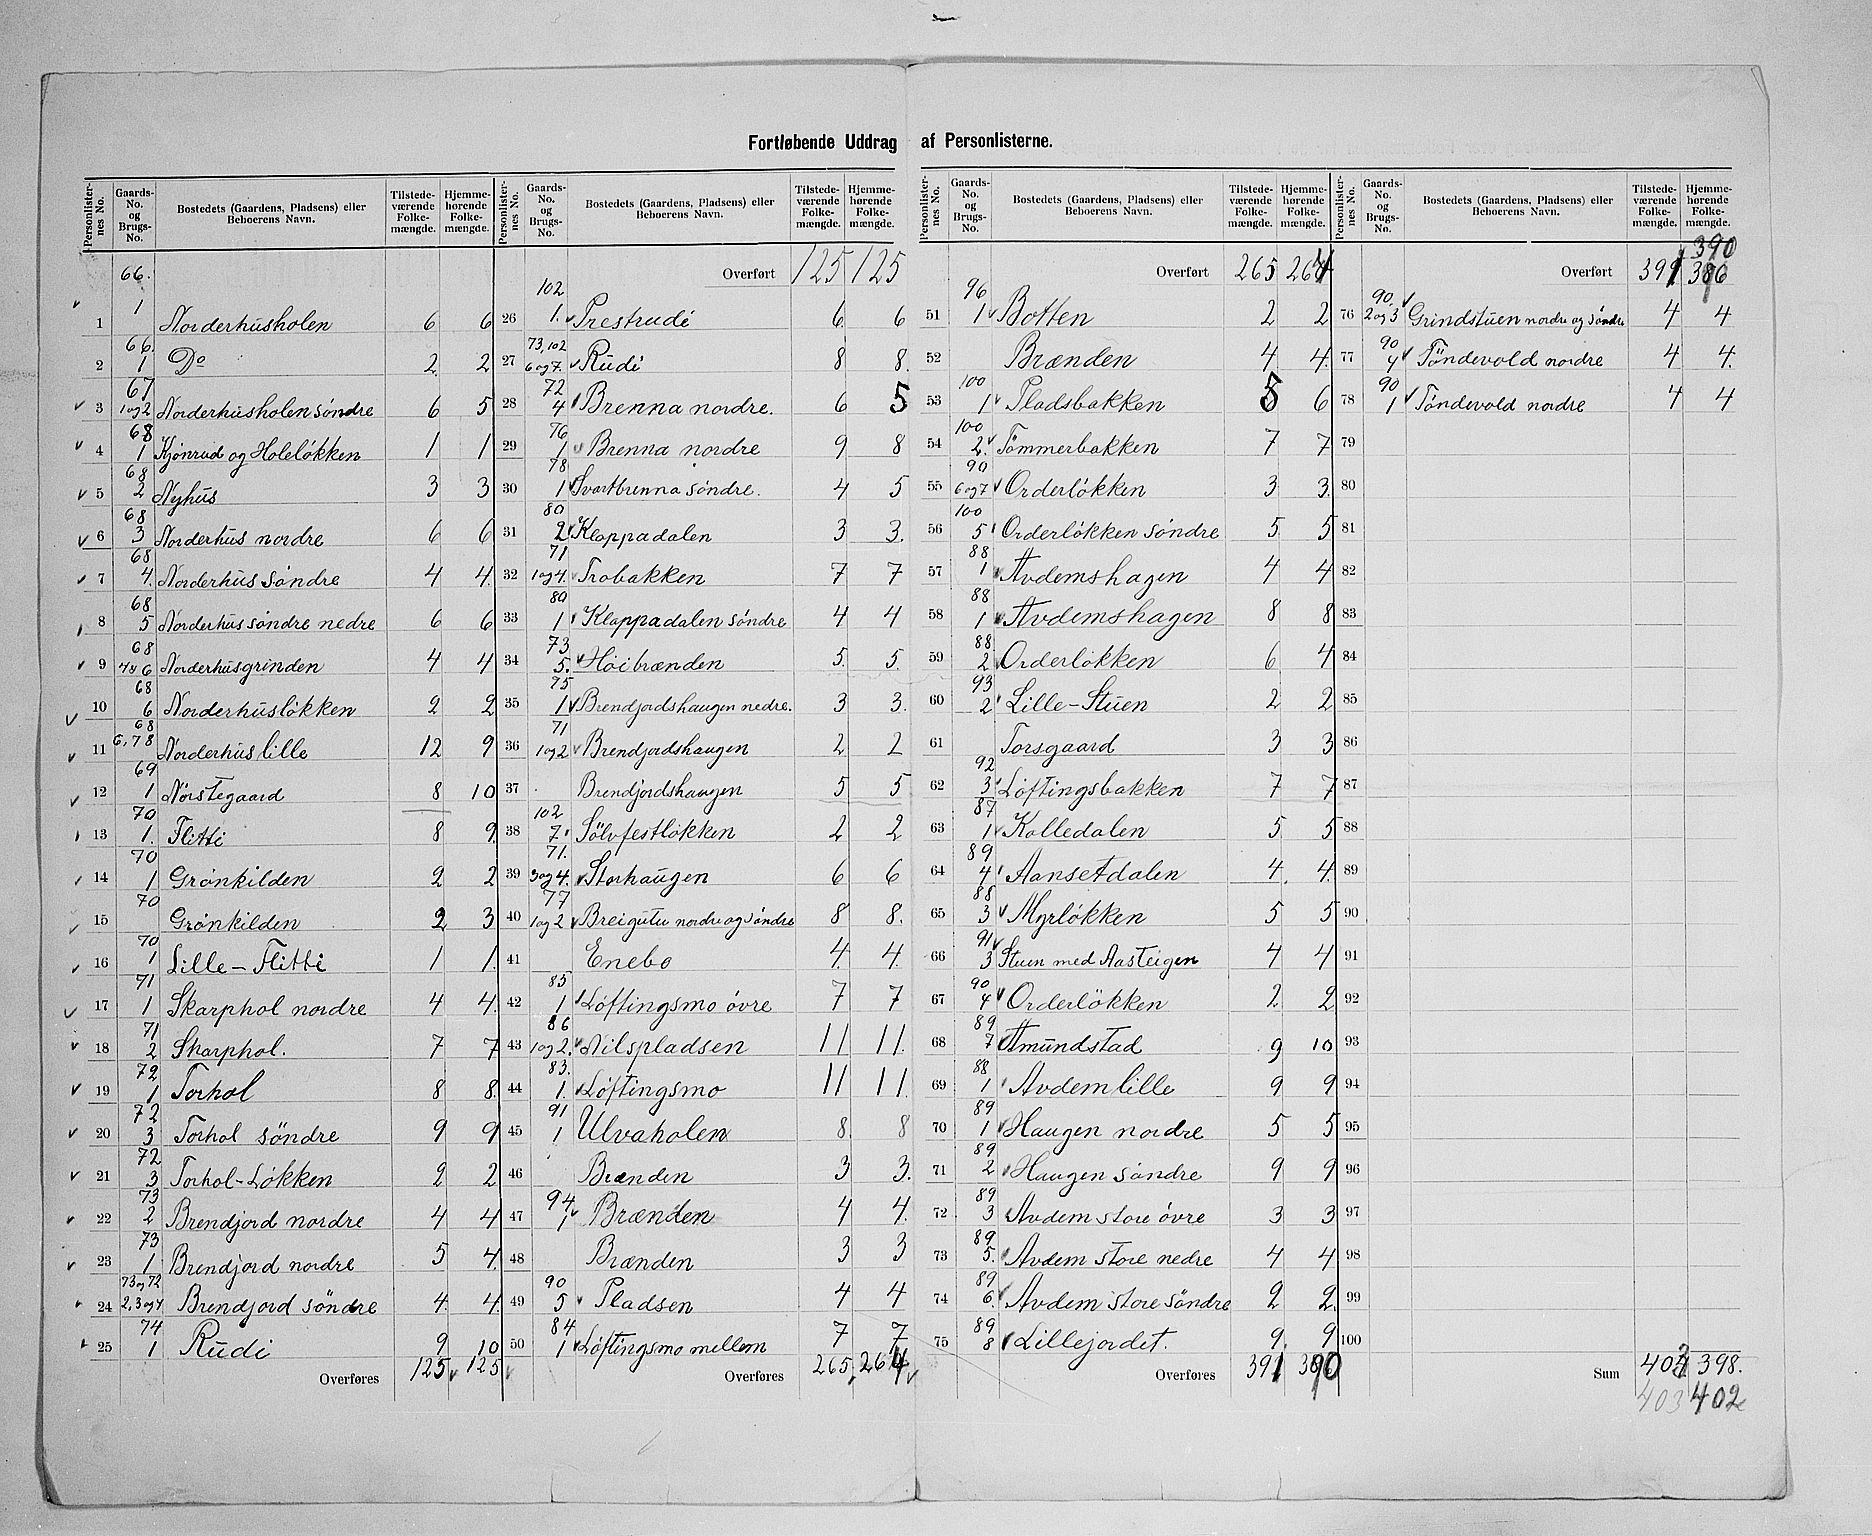 Fortløbende Uddrag af Personlisterne.
Personlisternes No. | Gaards-No. og Brugs-No. | Bostedets (Gaardens, Pladsens) eller Beboerens Navn. | Tilstedeværende Folkemængde. | Hjemmehørende Folkemængde.
1 | 66. 1 | Norderhusholen | 6 | 6
2 | 66. 1 | Do | 2 | 2
3 | 67 1og2 | Norderhusholen søndre | 6 | 5
4 | 68 1 | Kjønrud og Holeløkken | 1 | 1
5 | 68 2 | Nyhus | 3 | 3
6 | 68 3 | Norderhus nordre | 6 | 6
7 | 68 4. | Norderhus søndre | 4 | 4
8 | 68 5 | Norderhus søndre nedre | 6 | 6
9 | 68 | Norderhusgrinden | 4 | 4
10 | 68 6 | Norderhusløkken | 2 | 2
11 | 68 6,78 | Norderhus lille | 12 | 9
12 | 69 1 | Nørstegaard | 8 | 10
13 | 70 1. | Flitti | 8 | 9
14 | 70 1 | Grønkilden | 2 | 2
15 | 70 | Grønkilden | 2 | 3
16 | 70 1 | Lille-Flitti | 1 | 1
17 | 71 1 | Skarphol nordre | 4 | 4
18 | 71 2 | Skarphol. | 7 | 7
19 | 72 1 | Torhol | 8 | 8
20 | 72 3 | Torhol søndre | 9 | 9
21 | 72 3 | Torhol-Løkken | 2 | 2
22 | 73 2 | Brendjord nordre | 4 | 4
23 | 73 1 | Brendjord nordre | 5 | 4
24 | 73og72 2,3og4 | Brendjord søndre | 4 | 4
25 | 74 1 | Rudi | 9 | 10
Overføres 125 125
Personlisternes No. | Gaards-No. og Brugs-No. | Bostedets (Gaardens, Pladsens) eller Beboerens Navn. | Tilstedeværende Folkemængde. | Hjemmehørende Folkemængde.
Overført 125 125
26 | 102 1. | Prestrudi | 6 | 6
27 | 73,102 6og7. | Rudi | 8 | 8.
28 | 72 4 | Brenna nordre. | 6 | 5
29 | 76 1 | Brenna nordre | 9 | 8
30 | 78 1 | Svartbrenna søndre. | 4 | 5
31 | 80 2 | Kloppadalen | 3 | 3.
32 | 71 1og4. | Trobakken | 7 | 7
33 | 80 1 | Kloppadalen søndre | 4 | 4
34 | 73 5. | Høibrænden | 5. | 5.
35 | 75 1 | Brendjordshaugen nedre. | 3 | 3.
36 | 71 1og2 | Brendjordshaugen | 2 | 2
37 | Brendjordshaugen | 5 | 5
38 | 102 7 | Sölvfestløkken | 2 | 2
39 | 71. 3og4. | Storhaugen | 6 | 6
40 | 77 1og2 | Breigutu nordre og søndre | 8 | 8.
41 | Enebo | 4. | 4.
42 | 85 1 | Løftingsmo øvre | 7 | 7
43 | 86 1og2. | Nilspladsen | 11 | 11.
44 | 83. 1. | Løftingsmo | 11 | 11.
45 | 91 1 | Ulvaholen | 8. | 8
46 | Brænden | 3 | 3.
47 | 94 1 | Brænden | 4 | 4.
48 | Brænden | 3 | 3
49 | 90 5 | Pladsen | 4 | 4
50 | 84 1 | Løftingsmo mellem | 7 | 7
Overføres 265 264
Personlisternes No. | Gaards-No. og Brugs-No. | Bostedets (Gaardens, Pladsens) eller Beboerens Navn. | Tilstedeværende Folkemængde. | Hjemmehørende Folkemængde.
Overført 265 264
51 | 96 1 | Botten | 2 | 2
52 | Brænden | 4 | 4.
53 | 100 1 | Pladsbakken | 5 | 6
54 | 100 2. | Tömmerbakken | 7 | 7
55 | 90 6og7 | Orderløkken | 3 | 3.
56 | 100 5 | Orderløkken søndre | 5 | 5
57 | 88 1 | Avdemshagen | 4 | 4
58 | 88 1 | Avdemshagen | 8 | 8
59 | 88 2 | Orderløkken | 6 | 4
60 | 93 2 | Lille-Stuen | 2 | 2
61 | Torsgaard | 3 | 3
62 | 92 3 | Løftingsbakken | 7 | 7
63 | 87 1 | Kolledalen | 5 | 5
64 | 89 4 | Aansetdalen | 4. | 4.
65 | 88 3 | Myrløkken | 5 | 5
66 | 91 3 | Stuen med Aasteigen | 4 | 4
67 | 90 4 | Orderløkken | 2 | 2
68 | 89 7 | Amundstad | 9 | 10
69 | 88 1 | Avdemlille | 9 | 9
70 | 89 1 | Haugen nordre | 5 | 5
71 | 89 2 | Haugen søndre | 9 | 9
72 | 89 3 | Avdem store øvre | 3 | 3
73 | 89 5. | Avdem store nedre | 4 | 4
74 | 89 6. | Avdem store søndre | 2 | 2
75 | 89 8 | Lillejordet. | 9. | 9
Overføres 391 390
Personlisternes No. | Gaards-No. og Brugs-No. | Bostedets (Gaardens, Pladsens) eller Beboerens Navn. | Tilstedeværende Folkemængde. | Hjemmehørende Folkemængde.
390
Overført 391 386
76 | 90 2og3 | Grindstuen nordre og søndre | 4 | 4
77 | 90 4 | Töndevold nordre | 4 | 4.
78 | 90 1 | Töndevold nordre | 4 | 4
79
80
81
82
83
84
85
86
87
88
89
90
91
92
93
94
95
96
97
98
99
100
Sum 403 398.
403 402